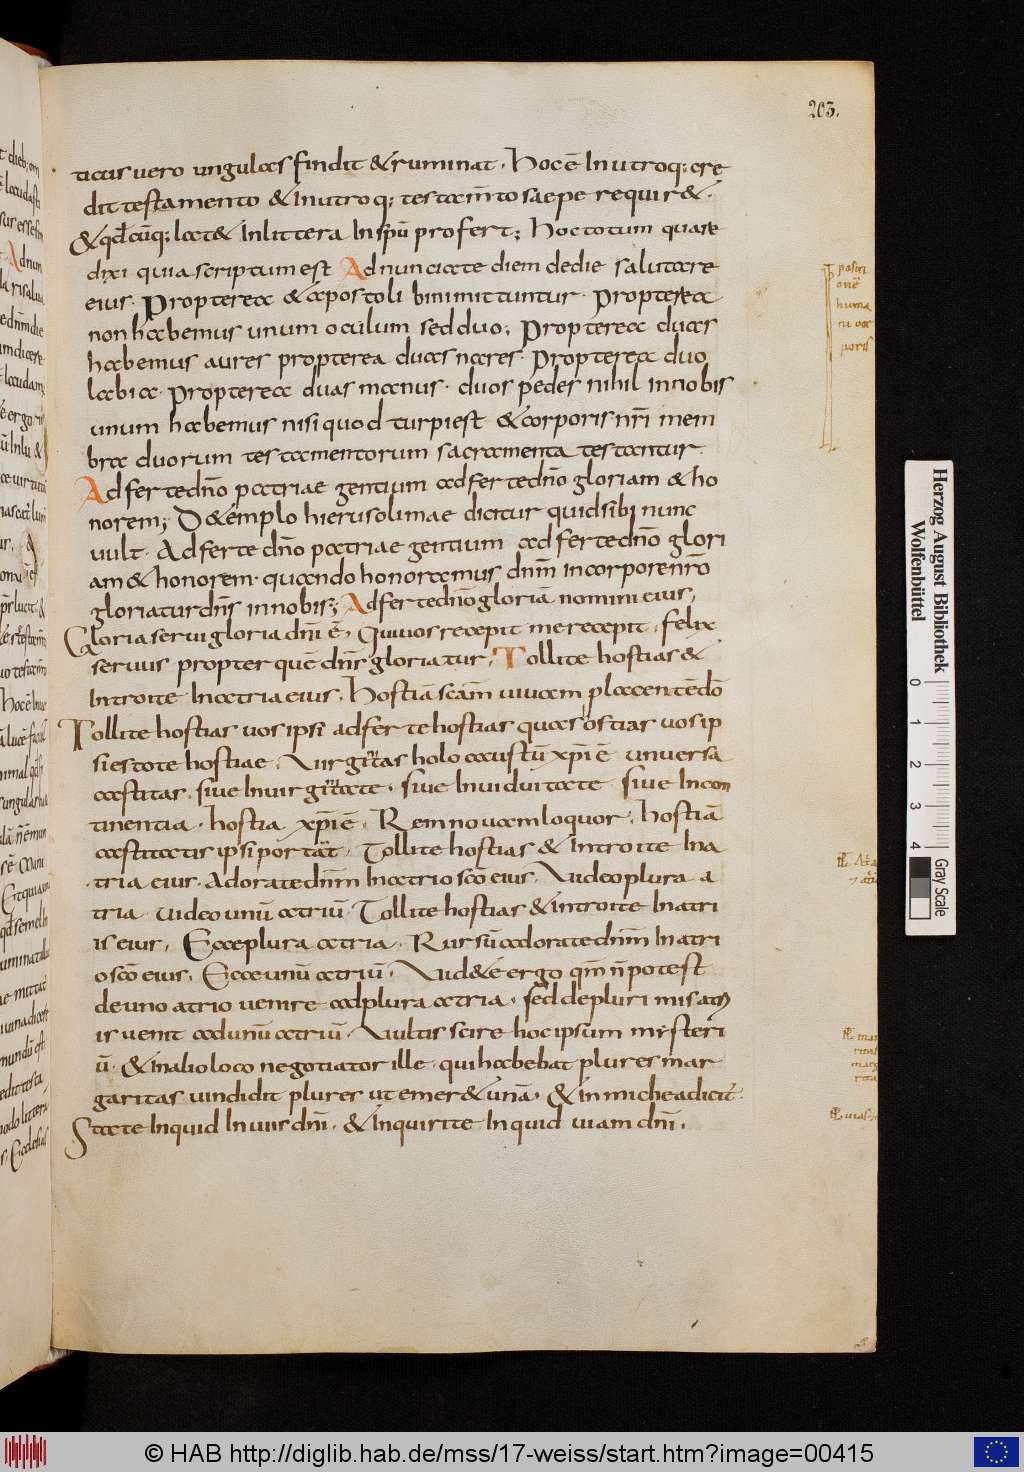 203.
ticus vero ungulas findit & ruminat. Hoc ē In utroq; cre
dit testamento & In utroq; testam̄to saepe requir&.
& qd̄cūq; lat& In littera In spū profert; Hoc totum quare
dixi quia scriptum est Adnunciate diem de die salutare
eius. Propterea & apostoli bini mittuntur. Propterea
non habemus unum oculum sed duo; Propterea duas
habemus aures propterea duas nares. Propterea duo
labia. Propterea duas manus. duos pedes nihil in nobis
unum habemus nisi quod turpi est & corporis nr̄i mem
bra duorum testamentorum sacramenta testantur.
Adferte dn̄o patriae gentium adferte dn̄o gloriam & ho
norem; D& emplo hierusolimae dicitur quid sibi nunc
uult. Adferte dn̄o patriae gentium adferte dn̄o glori
am & honorem. quando honoramus dnm̄ in corpore nr̄o
gloriatur dn̄s in nobis; Adferte dn̄o gloriā nomini eius,
Gloria serui gloria dn̄i ē, Qui uos recepit me recepit. felix
seruus propter quē dn̄s gloriatur. Tollite hostias &
Introite In atria eius. Hostiā scām uiuam placentē dō
Tollite hostias uos ipsi adferte hostias quas ostias uos ip
si estote hostiae. Virginitas holocaustū xp̄i ē uniuersa
castitas. siue In uirginitate. siue In uiduitate siue In con
tinentia. hostia xp̄i ē. Rem nouam loquor. Hostiā
castitatis ipsi portat. Tollite hostias & Introite In a
tria eius. Adorate dnm̄ In atrio scō eius. Video plura a
tria. Video unū atriū. Tollite hostias & introite In atri
is eius. Ecce plura atria. Rursū adorate dnm̄ In atri
o scō eius. Ecce unū atriū. Vid&e ergo qm̄ n̄ potest
de uno atrio uenire ad plura atria. sed de plurimis atri
is uenit ad unū atriū. Vultis scire hoc ipsum mysteri
ū. & in alio loco negotiator ille. qui habebat plures mar
garitas uindidit plures ut emer& unā. & in michea dicit
State Inquid In uiis dn̄i. & Inquirite Inquid uiam dn̄i.
Herzog August Bibliothek
Wolfenbüttel
0 1 2 3 4 Gray Scale
© HAB http://diglib.hab.de/mss/17-weiss/start.htm?image=00415